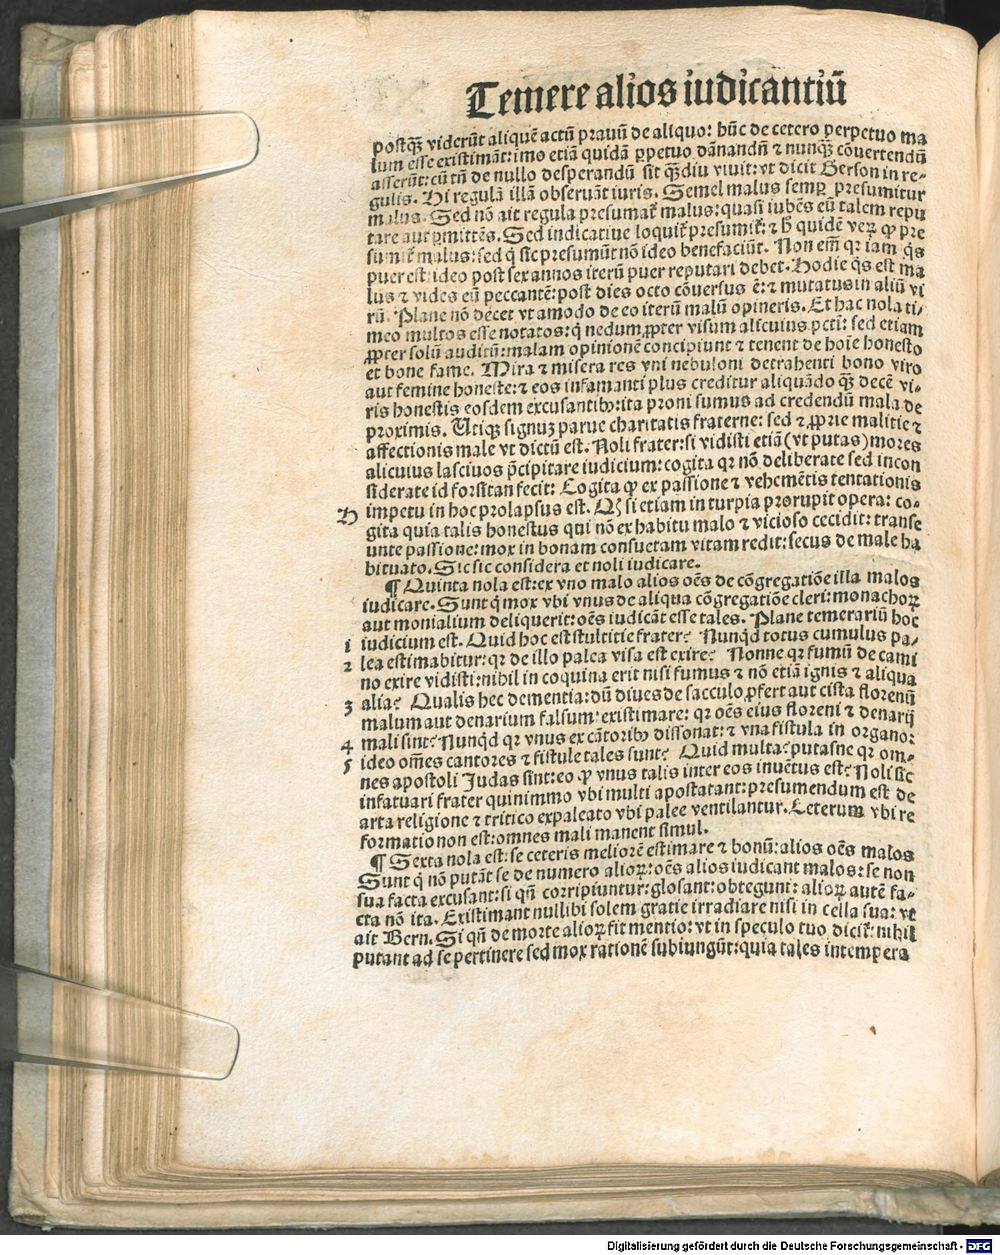 Temere alios iudicantiū
postqȝ viderūt aliquē actū prauū de aliquo: hūc de cetero perpetuo ma
lum esse existimāt: imo etiā quidā ꝑpetuo dānandū ⁊ nunqȝ cōuertendū
asserūt: cū tñ de nullo desperandū sit qȝdiu viuit: vt dicit Gerson in re-
gulis. Hi regulā illā obseruāt iuris. Semel malus semꝑ presumitur
malus. Sed nō ait regula presumat᷑ malus: quasi iubēs eū talem repu
tare aut ꝑmittēs. Sed indicatiue loquit᷑ presumit᷑: ⁊ ħ quidē veꝝ ꝙ pre
sumit᷑ malus: sed q̇ sic presumūt nō ideo benefaciūt. Non em̄ qꝛ iam q̇s
puer est: ideo post sex annos iterū puer reputari debet. Hodie q̇s est ma
lus ⁊ vides eū peccantē: post dies octo cōuersus ē: ⁊ mutatus in aliū vi
rū. Plane nō decet vt amodo de eo iterū malū opineris. Et hac nola ti-
meo multos esse notatos: q̇ nedum ꝓpter visum alicuius pctm̄: sed etiam
ꝓpter solū auditū: malam opinionē concipiunt ⁊ tenent de hoīe honesto
et bone fame. Mira ⁊ misera res vni nebuloni detrahenti bono viro
aut femine honeste: ⁊ eos infamanti plus creditur aliquādo qȝ decē vi-
ris honestis eosdem excusantibꝰ: ita proni sumus ad credendū mala de
proximis. Utiqȝ signuȝ parue charitatis fraterne: sed ⁊ ꝓprie malitie ⁊
affectionis male vt dictū est. Noli frater: si vidisti etiā (vt putas) mores
alicuius lasciuos p̄cipitare iudicium: cogita qꝛ nō deliberate sed incon
siderate id forsitan fecit: Cogita ꝙ ex passione ⁊ vehemētis tentationis
H impetu in hoc prolapsus est. Qȝ si etiam in turpia prorupit opera: co-
gita quia talis honestus qui nō ex habitu malo ⁊ vicioso cecidit: transe
unte passione: mox in bonam consuetam vitam redit: secus de male ha
bituato. Sic sic considera et noli iudicare.
¶ Quinta nola est: ex vno malo alios oēs de cōgregatiōe illa malos
iudicare. Sunt q̇ mox vbi vnus de aliqua cōgregatiōe cleri: monachoꝝ
aut monialium deliquerit: oēs iudicāt esse tales. Plane temerariū hoc
1 iudicium est. Quid hoc est stultitie frater? Nunqd totus cumulus pa-
2 lea estimabitur: qꝛ de illo palea visa est exire? Nonne qꝛ fumū de cami
no exire vidisti: nihil in coquina erit nisi fumus ⁊ nō etiā ignis ⁊ aliqua
3 alia? Qualis hec dementia: dū diues de sacculo ꝓfert aut cista florenū
malum aut denarium falsum: existimare: qꝛ oēs eius floreni ⁊ denarij
4 mali sint? Nunqd qꝛ vnus ex cātoribꝰ dissonat: ⁊ vna fistula in organo:
5 ideo om̄es cantores ⁊ fistule tales sunt? Quid multa? putasne qꝛ om-
nes apostoli Judas sint: eo ꝙ vnus talis inter eos inuētus est? Noli sic
infatuari frater quinimmo vbi multi apostatant: presumendum est de
arta religione ⁊ tritico expaleato vbi palee ventilantur. Ceterum vbi re
formatio non est: omnes mali manent simul.
¶ Sexta nola est: se ceteris meliorē estimare ⁊ bonū: alios oēs malos
Sunt q̇ nō putāt se de numero alioꝝ: oēs alios iudicant malos: se non
sua facta excusant: si qn̄ corripiuntur: glosant: obtegunt: alioꝝ autē fa-
cta nō ita. Existimant nullibi solem gratie irradiare nisi in cella sua: vt
ait Bern. Si qn̄ de morte alioꝝ fit mentio: vt in speculo tuo dicit᷑: nihil
putant ad se pertinere sed mox rationē subiungūt: quia tales intempera
Digitalisierung gefördert durch die Deutsche Forschungsgemeinschaft - DFG